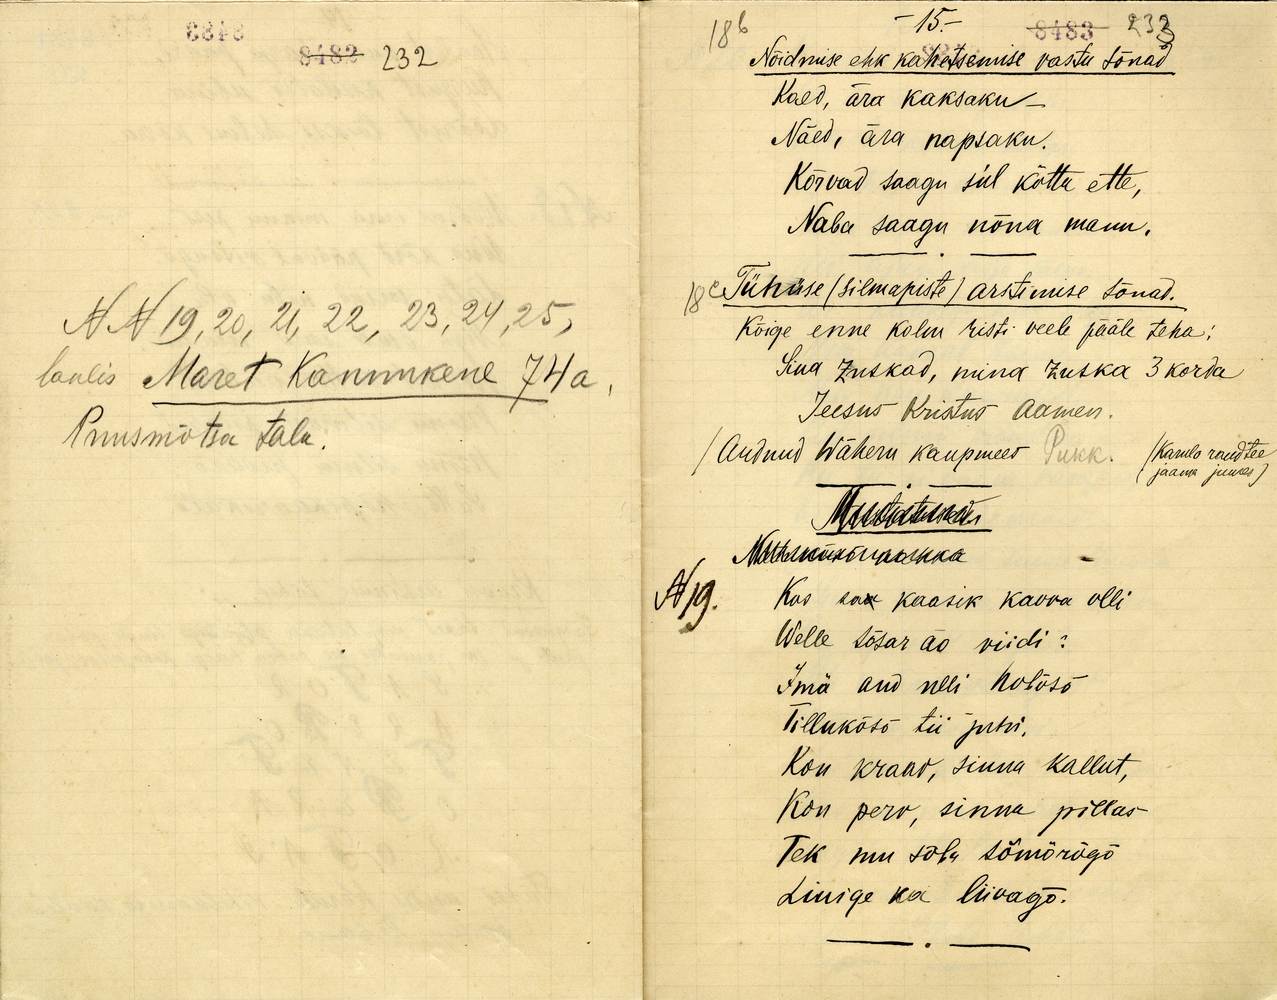 8482 232
NN 19, 20, 21, 22, 23, 24, 25,
laulis Maret Kannukene 74a,
Puusmõtsa talu.
18b -15.- 8483 233
Nõidmise ehk kahetsemise vastu sõnad
Kaed, ära kaksaku
Näed, ära napsaku.
Kõrvad saagu sul kõttu ette,
Naba saagu nõna mann.
18c Tühüse (silmapiste) arstimise sõnad.
Kõige enne kolm risti veele pääle teha:
Sina zuskad, mina zuska 3 korda
Jeesus Kristus Aamen.
(Andnud Wähern kaupmees Pukk. (Karula raudtee
jaama juures)
N19. Kos kaasik kavva olli
Welle sõsar ao viidi?
Imä and ulli hobõsõ
Tillukõsõ tii juhi,
Kon kraav, sinna kallut,
Kon perv, sinna pillas
Tek mu sõba sõmõrõgõ
Linige ka liivagõ.